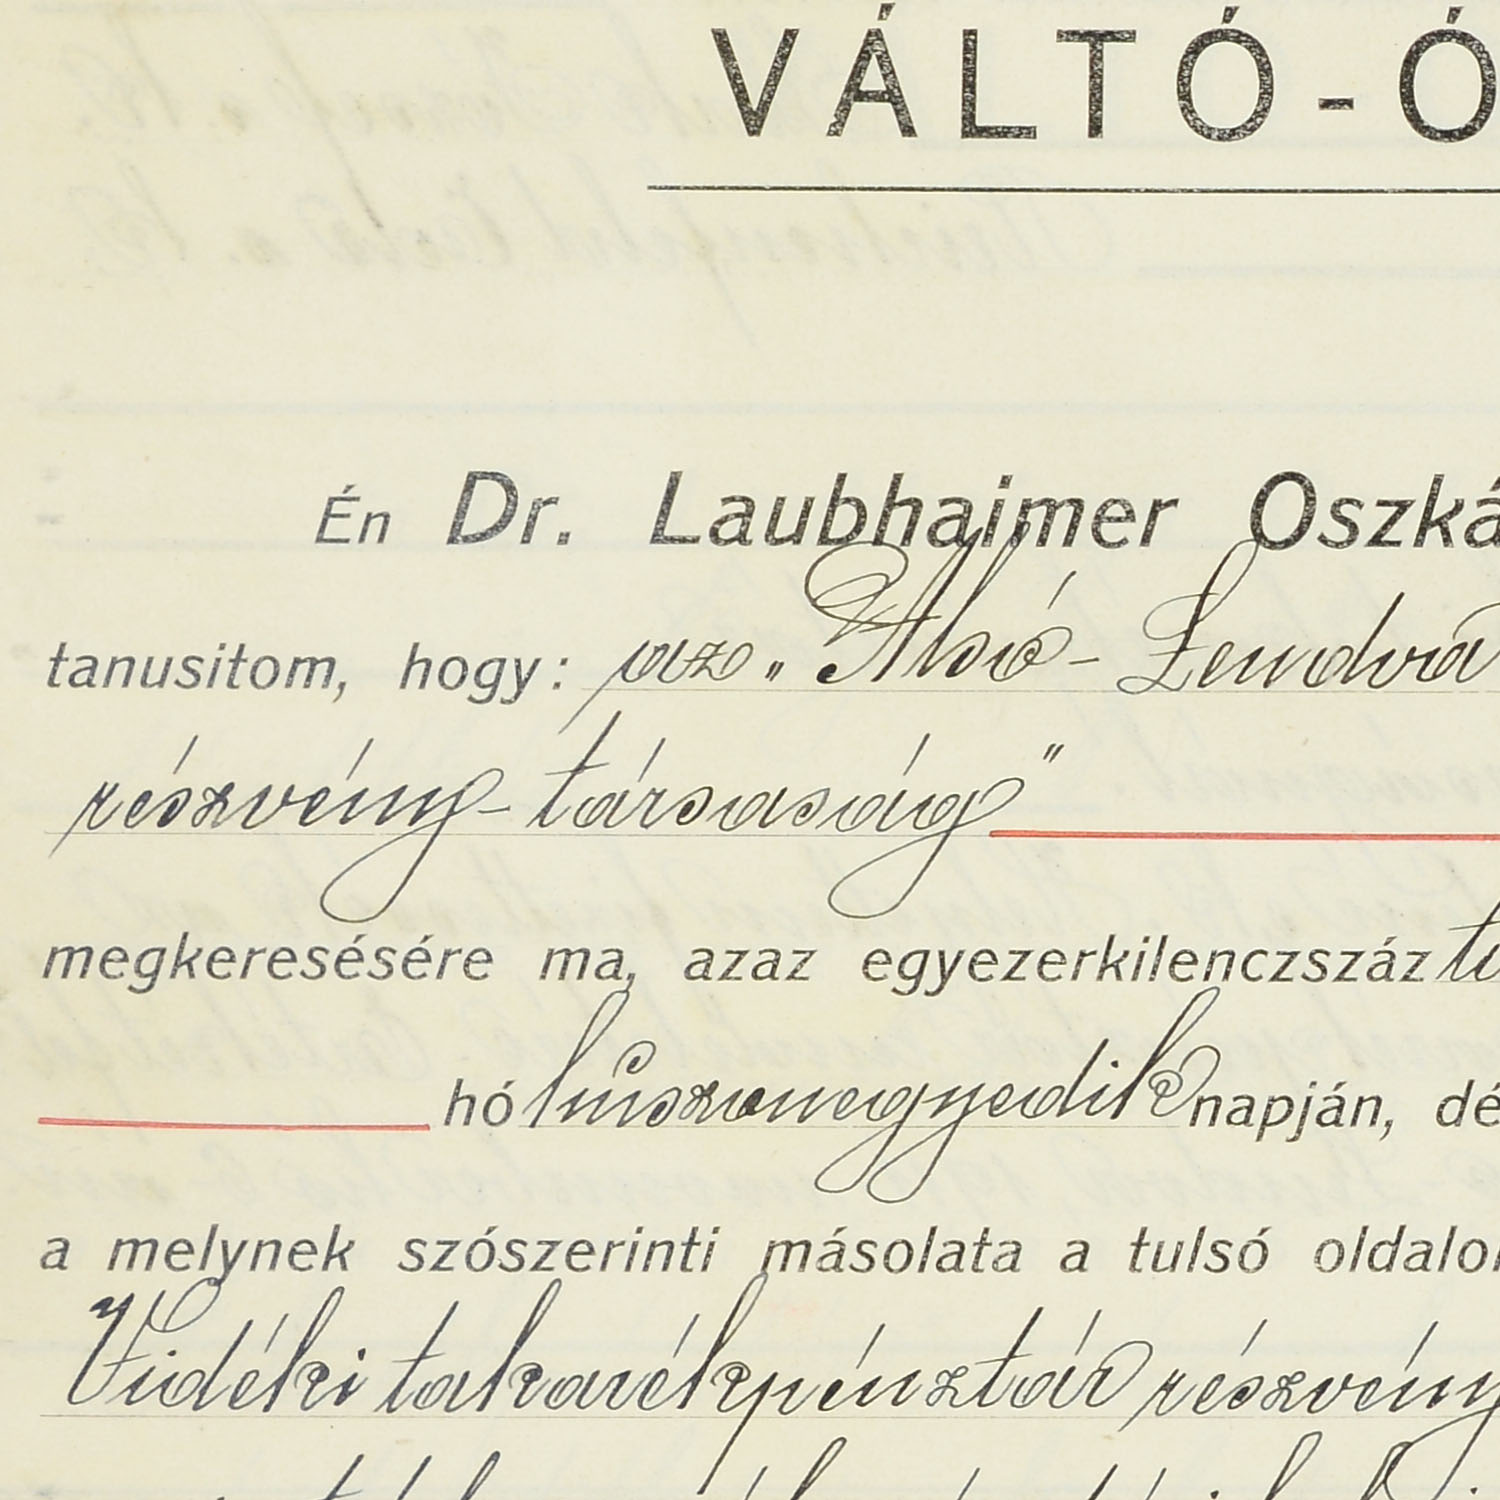 VÁLTÓ-Ó
Én Dr. Laubhaimer Oszká
tanusitom, hogy: az „Alsó-Lendva
részvény-társaság"
megkeresésére ma, azaz egyezerkilenczszáz ti
hó huszonegyedik napján, dé
a melynek szószerinti másolata a tulsó oldalon
Vidéki takarékpénztár részvény